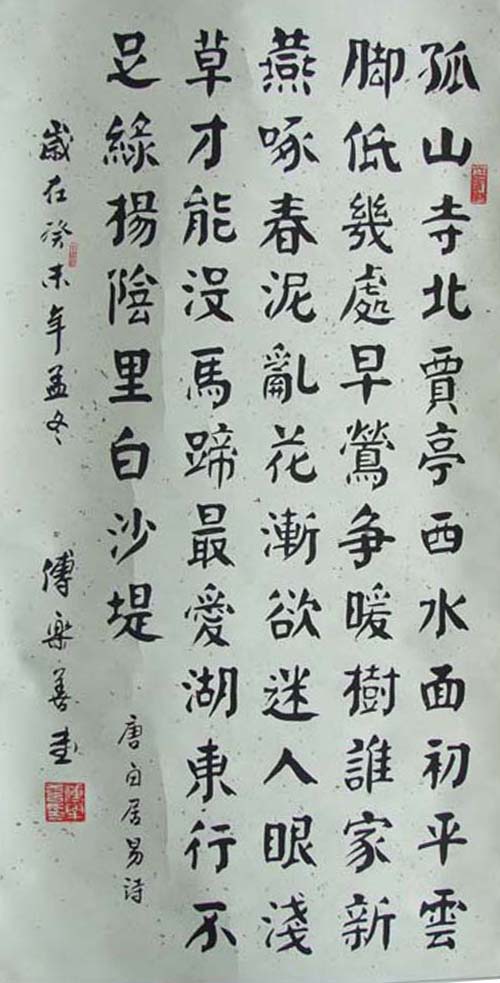 孤山寺北賈亭西水面初平雲
脚低幾處早鶯争暖樹誰家新
燕啄春泥亂花漸欲迷人眼淺
草才能没馬蹄最愛湖東行不
足綠楊陰里白沙堤
唐白居易詩
歲在癸未年孟冬 傅樂善書